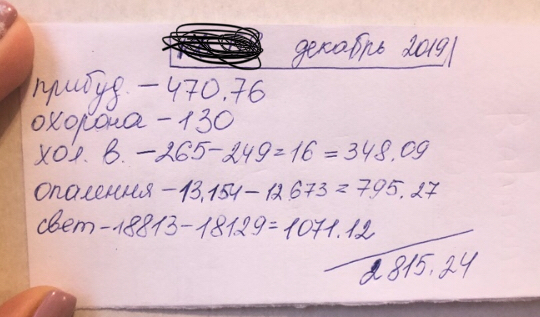 декабрь 2019
прибуд. - 470.76
охорона - 130
хол. в. - 265 - 249 = 16 = 348.09
опалення - 13,154 - 12673 = 795.27
свет - 18813 - 18129 = 1071.12
2815.24